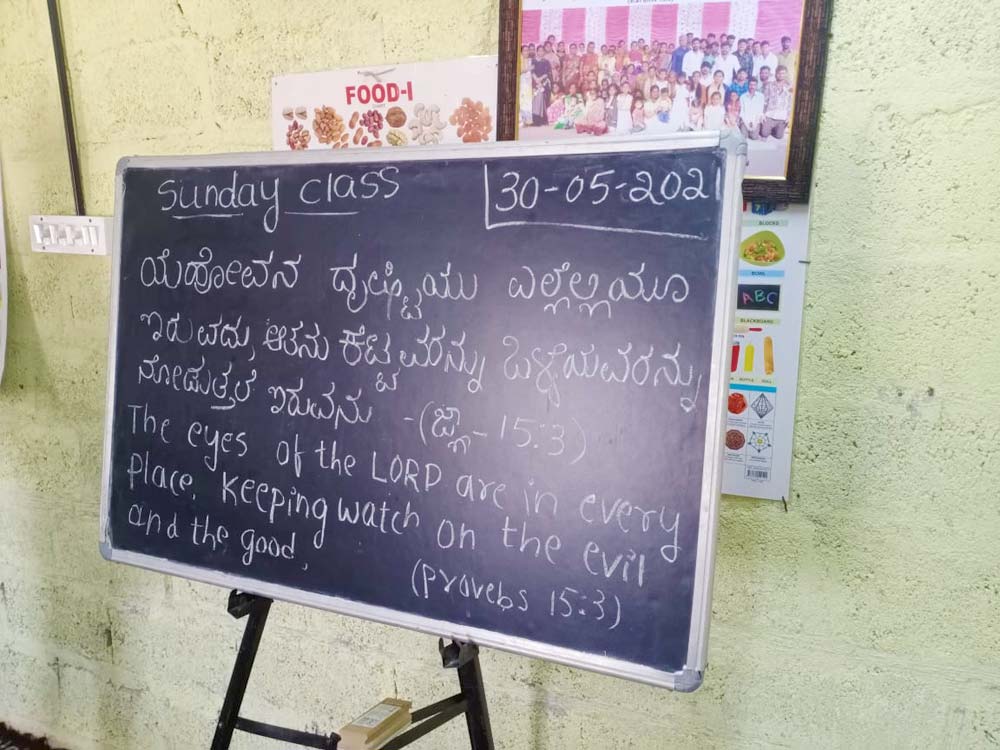 FOOD-I
Sunday class
30-05-202
ಯೆಹೋವನ ದೃಷ್ಟಿಯು ಎಲ್ಲೆಲ್ಲಿಯೂ
ಇರುವದು, ಆತನು ಕೆಟ್ಟವರನ್ನು ಒಳ್ಳೆಯವರನ್ನು
ನೋಡುತ್ತಲೆ ಇರುವನು -(ಜ್ಞಾ - 15:3)
The eyes of the LORD are in every
place, keeping watch on the evil
and the good,
(provebs 15:3)
BLOCKS
BOWL
ABC
BLACKBOARD
BOTTLE